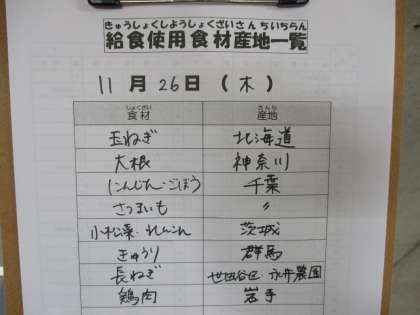 きゅうしょくしようしょくざいさんちいちらん
給食使用食材産地一覧
11月26日(木)
しょくざい さんち
食材 産地
玉ねぎ 北海道
大根 神奈川
にんじん・ごぼう 千葉
さつまいも 〃
小松菜・れんこん 茨城
きゅうり 群馬
長ねぎ 世田谷区・永井農園
鶏肉 岩手